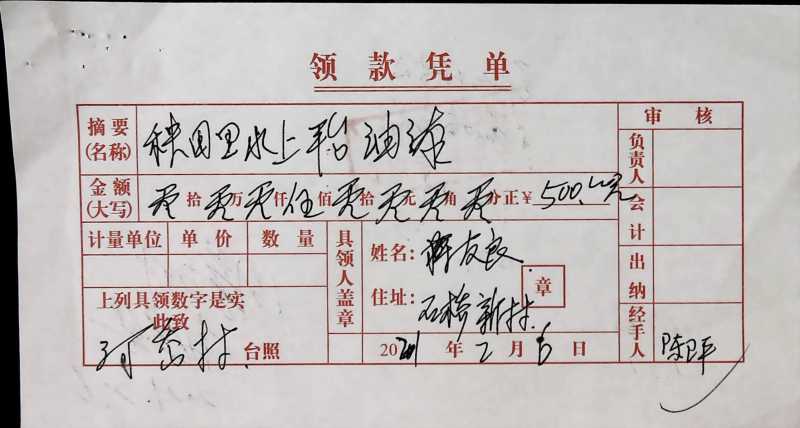 领款凭单
摘要(名称) 秧田里水上平台油漆
审核
金额(大写) 零拾零万零仟伍佰零拾零元零角零分正¥500.00元
负责人
会计
计量单位 单价 数量
具领人盖章
姓名: 蒋友良
住址: 石桥新村
章
出纳
上列具领数字是实
此致
村 台照
2021年2月6日
经手人 陈卫平